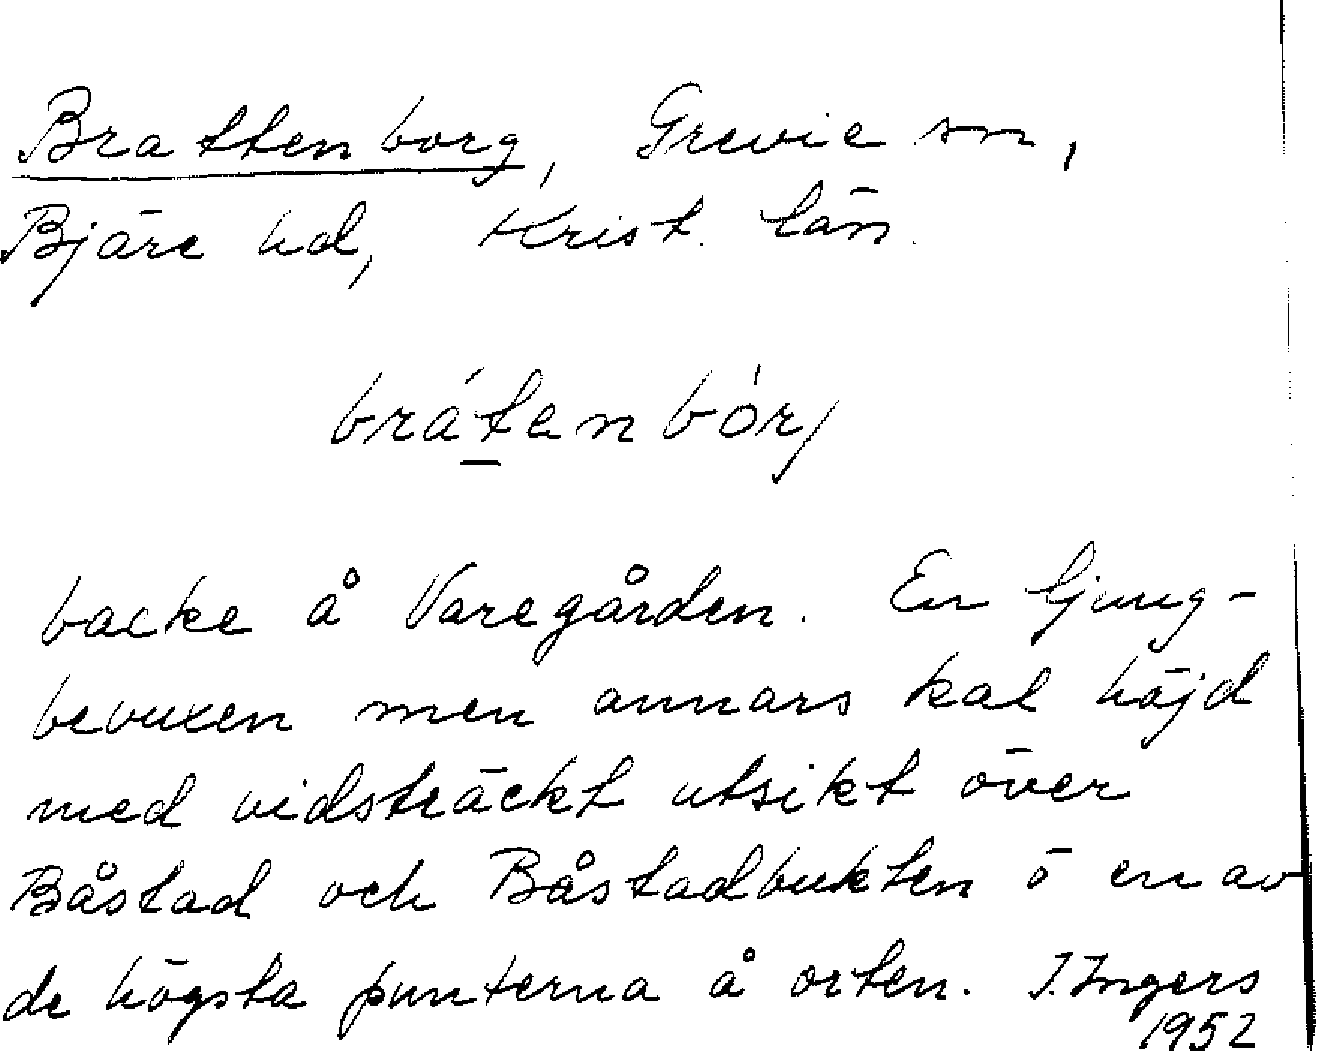 Brattenborg, Grevie sn,
Bjäre hd, Krist. län.
brátenbórj
backe å Varegården. En ljung-
bevuxen men annars kal höjd
med vidsträckt utsikt över
Båstad och Båstadbukten ō en av
de högsta punterna å orten. I. Ingers
1952